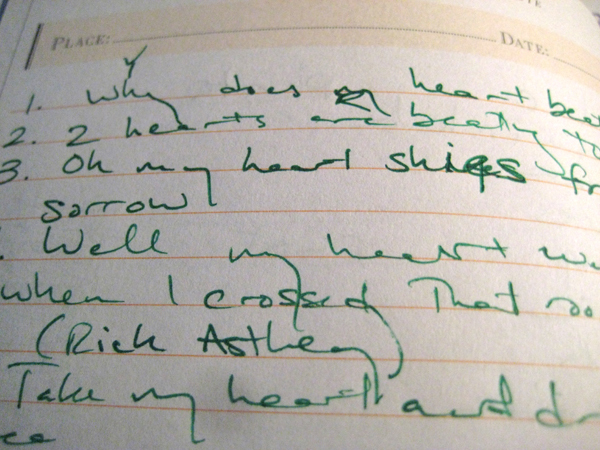 PLACE: DATE:
1. Why does my heart bea
2. 2 hearts are beating to
3. Oh my heart skips fr
sorrow
Well my heart we
when I crossed That roo
(Rick Astley)
Take my heart and dr